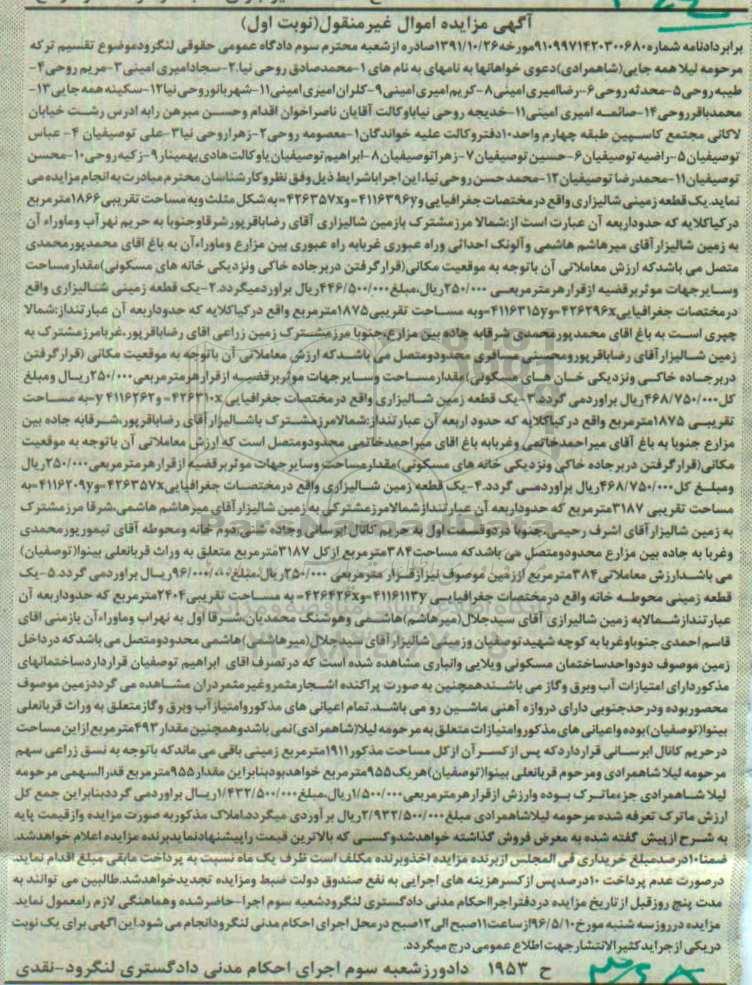 آگهی مزایده اموال غیرمنقول(نوبت اول)
برابر دادنامه شماره ۹۱۰۹۹۷۱۴۲۰۳۰۰۶۸۰مورخه ۱۳۹۱/۱۰/۲۶صادره ازشعبه محترم سوم دادگاه عمومی حقوقی لنگرودموضوع تقسیم ترکه
مرحومه لیلا همه جایی(شاهمرادی)دعوی خواهانها به نامهای به نام های ۱-محمدصادق روحی نیا۲-سجادامیری امینی۳-مریم روحی۴-
طیبه روحی۵-محدثه روحی۶-رضاامیری امینی۸-کریم امیری امینی۹-کلران امیری امینی۱۱-شهربانوروحی نیا۱۲-سکینه همه جایی۱۳-
محمدباقرروحی۱۴-صائمه امیری امینی۱۱-خدیجه روحی نیاباوکالت آقایان ناصراخوان اقدام وحسن مبرهن رابه ادرس رشت خیابان
لاکانی مجتمع کاسپین طبقه چهارم واحد۱۰دفتروکالت علیه خواندگان۱-معصومه روحی۲-زهراروحی نیا۳-علی توصیفیان ۴-عباس
توصیفیان۵-راضیه توصیفیان۶-حسین توصیفیان۷-زهراتوصیفیان۸-ابراهیم توصیفیان باوکالت هادی بهمینار۹-زکیه روحی۱۰-محسن
توصیفیان۱۱-محمدرضا توصیفیان۱۲-محمدحسن روحی نیا،این اجراباشرایط ذیل وفق نظروکارشناسان محترم مبادرت به انجام مزایده می
نماید.یک قطعه زمینی شالیزاری واقع درمختصات جغرافیایی و۴۱۱۶۳۹۶y=و۴۲۶۳۵۷x= به شکل مثلث وبه مساحت تقریبی ۱۸۶۶مترمربع
درکیاکلایه که حدوداربعه آن عبارت است از:شمالا مرزمشترک بازمین شالیزاری آقای رضاباقرپورشرقاوجنوبا به حریم نهرآب وماوراء آن
به زمین شالیزارآقای میرهاشم هاشمی وآلونک احداثی وراه عبوری غربابه راه عبوری بین مزارع وماوراءآن به باغ اقای محمدپورمحمدی
متصل می باشدکه ارزش معاملاتی آن باتوجه به موقعیت مکانی(قرارگرفتن دربرجاده خاکی ونزدیکی خانه های مسکونی)مقدارمساحت
وسایرجهات موثربرقضیه ازقرارهرمترمربعی ۲۵۰/۰۰۰ریال،مبلغ۴۴۶/۵۰۰/۰۰۰ریال براوردمیگردد.۲-یک قطعه زمینی شالیزاری واقع
درمختصات جغرافیایی۴۲۶۲۹۶x=و۴۱۱۶۳۱۵y=وبه مساحت تقریبی۱۸۷۵مترمربع واقع درکیاکلایه که حدوداربعه آن عبارتنداز:شمالا
چپری است به باغ اقای محمدپورمحمدی شرقابه جاده بین مزارع،جنوبا مرزمشترک زمین زراعی اقای رضاباقرپور،غربامرزمشترک به
زمین شالیزارآقای رضاباقرپورومحسنی مسافری محدودومتصل می باشدکه ارزش معاملاتی آن باتوجه به موقعیت مکانی (قرارگرفتن
دربرجاده خاکی ونزدیکی خان های مسکونی)مقدارمساحت وسایرجهات موثربرقضیه ازقرارهرمترمربعی۲۵۰/۰۰۰ریال ومبلغ
کل۴۶۸/۷۵۰/۰۰۰ریال براوردمی گردد.۳-یک قطعه زمین شالیزاری واقع درمختصات جغرافیایی ۴۲۶۳۱۰x=و۴۱۱۶۲۶۲ y=به مساحت
تقریبی ۱۸۷۵مترمربع واقع درکیاکلایه که حدود اربعه آن عبارتنداز:شمالامرزمشترک باشالیزارآقای رضاباقرپور،شرقابه جاده بین
مزارع جنوبا به باغ آقای میراحمدخاتمی وغربابه باغ اقای میراحمدخاتمی محدودومتصل است که ارزش معاملاتی آن باتوجه به موقعیت
مکانی(قرارگرفتن دربرجاده خاکی ونزدیکی خانه های مسکونی)مقدارمساحت وسایرجهات موثربرقضیه ازقرارهرمترمربعی۲۵۰/۰۰۰ریال
ومبلغ کل۴۶۸/۷۵۰/۰۰۰ریال براوردمی گردد.۴-یک قطعه زمین شالیزاری واقع درمختصات جغرافیایی۴۲۶۳۵۷x=و۴۱۱۶۲۰۹y=به
مساحت تقریبی ۳۱۸۷مترمربع که حدوداربعه آن عبارتندازشمالامرزمشترکی به زمین شالیزارآقای میرهاشم هاشمی،شرقا مرزمشترک
به زمین شالیزارآقای اشرف رحیمی،جنوبا دردوقسمت اول به حریم کانال ابرسانی وجاده شنی،دوم خانه ومحوطه آقای تیمورپورمحمدی
وغربا به جاده بین مزارع محدودومتصل می باشدکه مساحت۳۸۴مترمربع ازکل ۳۱۸۷مترمربع متعلق به وراث قربانعلی بینوا(توصفیان)
می باشدارزش معاملاتی۳۸۴مترمربع اززمین موصوف نیزازقرار مترمربعی ۲۵۰/۰۰۰ریال،مبلغ۹۶/۰۰۰/۰۰۰ریال براوردمی گردد.۵-یک
قطعه زمینی محوطه خانه واقع درمختصات جغرافیایی ۴۱۱۶۱۱۳y=و۴۲۶۴۲۶x= به مساحت تقریبی۲۴۰۴مترمربع که حدوداربعه آن
عبارتندازشمالابه زمین شالیزاری آقای سیدجلال(میرهاشم)هاشمی وهوشنگ محمدیان،شرقا اول به نهراب وماوراءآن بازمنی اقای
قاسم احمدی جنوباوغربا به کوچه شهیدتوصفیان وزمینی شالیزارآقای سیدجلال(میرهاشمی)هاشمی محدودومتصل می باشدکه درداخل
زمین موصوف دودواحدساختمان مسکونی ویلایی وانباری مشاهده شده است که درتصرف اقای ابراهیم توصفیان قرارداردساختمانهای
مذکوردارای امتیازات آب وبرق وگاز می باشندهمچنین به صورت پراکنده اشجارمثمروغیرمثمردران مشاهده می گرددزمین موصوف
محصوربوده ودرحدجنوبی دارای دروازه آهنی ماشین رو می باشد.تمام اعیانی های مذکوروامتیازآب وبرق وگازمتعلق به وراث قربانعلی
بینوا(توصفیان)بوده واعیانی های مذکوروامتیازات متعلق به مرحومه لیلا(شاهمرادی)نمی باشدوهمچنین مقدار۴۹۳مترمربع ازاین مساحت
درحریم کانال ابرسانی قرارداردکه پس ازکسرآن ازکل مساحت مذکور۱۹۱۱مترمربع زمینی باقی می ماندکه باتوجه به نسق زراعی سهم
مرحومه لیلا شاهمرادی ومرحوم قربانعلی بینوا(توصفیان)هریک۹۵۵مترمربع خواهدبودبنابراین مقدار۹۵۵مترمربع قدرالسهمی مرحومه
لیلا شاهمرادی جزءماترک بوده وارزش ازقرارهرمترمربعی۱/۵۰۰/۰۰۰ریال،مبلغ۱/۴۳۲/۵۰۰/۰۰۰ریال براوردمی گرددبنابراین جمع کل
ارزش ماترک تعرفه شده مرحومه لیلاشاهمرادی مبلغ۲/۹۳۲/۵۰۰/۰۰۰ریال برآوردی میگردد.املاک مذکوربه صورت مزایده وازقیمت پایه
به شرح ازپیش گفته شده به معرض فروش گذاشته خواهدشدوکسی که بالاترین قیمت راپیشنهادنمایدبرنده مزایده اعلام خواهدشد.
ضمنا۱۰درصدمبلغ خریداری فی المجلس ازبرنده مزایده اخذوبرنده مکلف است ظرف یک ماه نسبت به پرداخت مابقی مبلغ اقدام نماید.
درصورت عدم پرداخت ۱۰درصدپس ازکسرهزینه های اجرایی به نفع صندوق دولت ضبط ومزایده تجدیدخواهدشد.طالبین می توانند به
مدت پنج روزقبل ازتاریخ مزایده دردفتراجرااحکام مدنی دادگستری لنگرودشعبه سوم اجرا-حاضرشده وهماهنگی لازم رامعمول نماید.
مزایده درروزسه شنبه مورخ۹۶/۵/۱۰ازساعت۱۱صبح الی۱۲صبح درمحل اجرای احکام مدنی لنگرودانجام می شود.این اگهی برای یک نوبت
دریکی ازجرایدکثیرالانتشارجهت اطلاع عمومی درج میگردد.
ح ۱۹۵۳ دادورزشعبه سوم اجرای احکام مدنی دادگستری لنگرود-نقدی